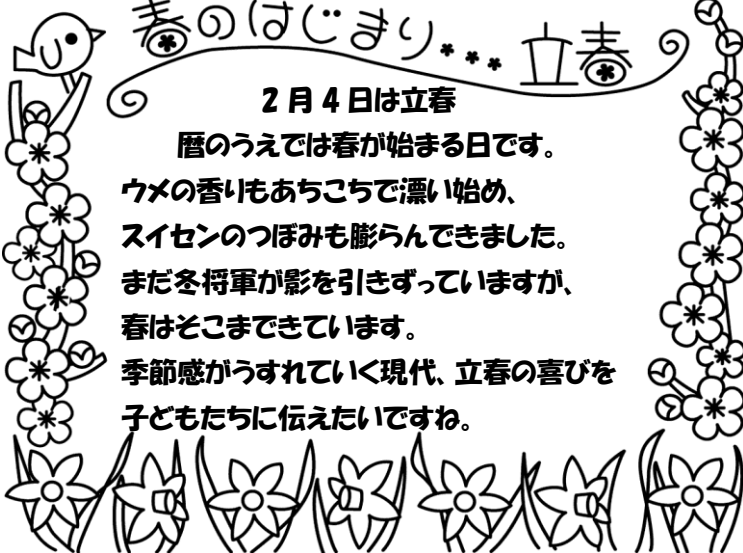 春のはじまり... 立春
2月4日は立春
暦のうえでは春が始まる日です。
ウメの香りもあちこちで漂い始め、
スイセンのつぼみも膨らんできました。
まだ冬将軍が影を引きずっていますが、
春はそこまできています。
季節感がうすれていく現代、立春の喜びを
子どもたちに伝えたいですね。